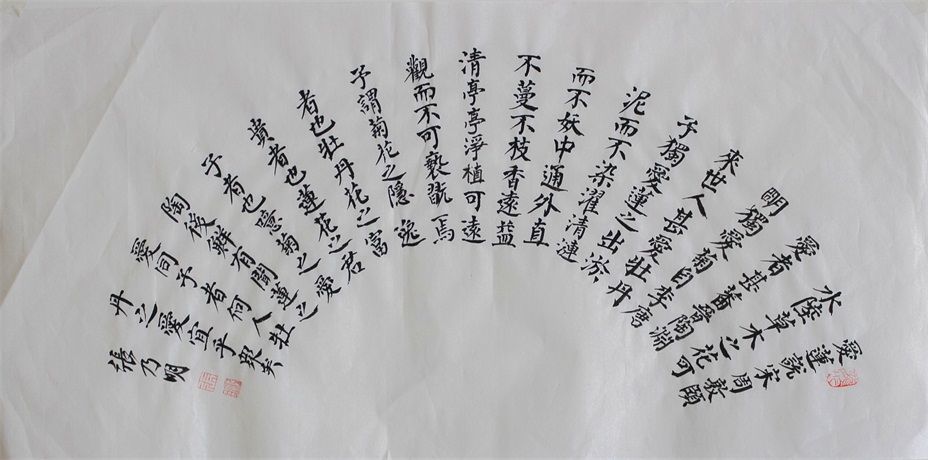 愛蓮說宋周敦頤
水陸草木之花可
愛者甚蕃晉陶淵
明獨愛菊自李唐
來世人甚愛牡丹
予獨愛蓮之出淤
泥而不染濯清漣
而不妖中通外直
不蔓不枝香遠益
清亭亭淨植可遠
觀而不可褻翫焉
予謂菊花之隱逸
者也牡丹花之富
貴者也蓮花之君
子者也噫菊之愛
陶後鮮有聞蓮之
愛同予者何人牡
丹之愛宜乎眾矣
張乃明